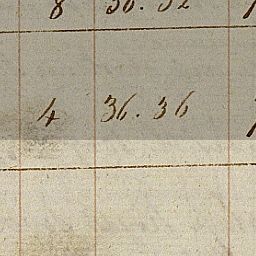 8 36.32
4 36.36